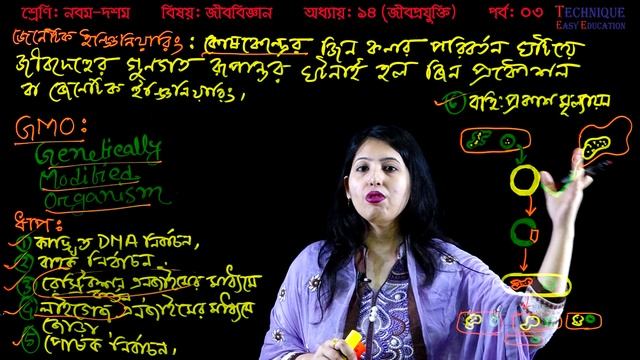 শ্রেণি: নবম-দশম বিষয়: জীববিজ্ঞান অধ্যায়: ১৪ (জীবপ্রযুক্তি) পর্ব: ০৩
TECHNIQUE
EASY EDUCATION
জেনেটিক ইঞ্জিনিয়ারিং: কোষকেন্দ্রের জিন কনার পরিবর্তন ঘটিয়ে
জীবদেহের গুনগত রূপান্তর ঘটানাই হল জিন প্রকৌশল
বা জেনেটিক ইঞ্জিনিয়ারিং,
৬ বহি:প্রকাশ মূল্যায়ন
GMO:
Genetically
Modified
Organism
ধাপ:
১ কাঙ্খিত DNA নির্বাচন,
২ বাহক নির্বাচন,
৩ রেস্ট্রিকশন এনজাইমের মাধ্যমে
৪ লাইগেজ এনজাইমের মাধ্যমে
জোড়া,
৫ পোষক নির্বাচন,